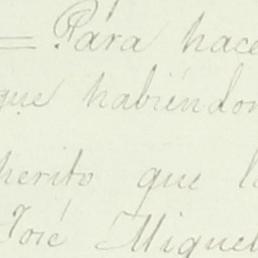 = Para hace
que habiéndo
herito que l
José Miguel